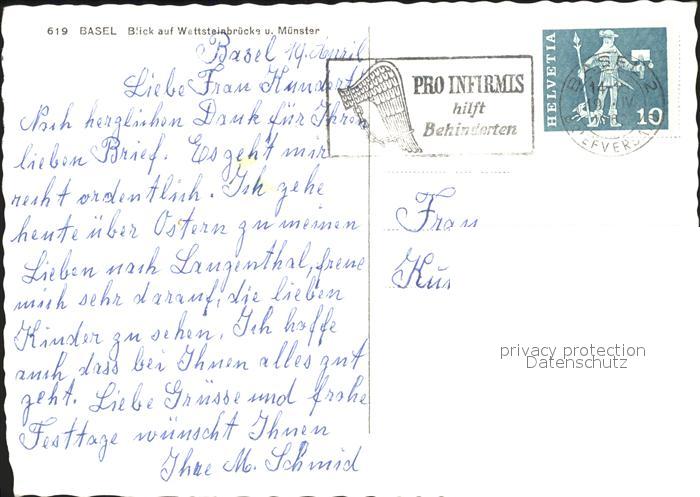 619 BASEL Blick auf Wettsteinbrücke u. Münster
Basel 19. April
Liebe Frau Kundert!
Noch herzlichen Dank für Ihren
lieben Brief. Es geht mir
recht ordentlich. Ich gehe
heute über Ostern zu meinen
Lieben nach Langenthal, freue
mich sehr darauf, die lieben
Kinder zu sehen. Ich hoffe
auch dass bei Ihnen alles gut
geht. Liebe Grüsse und frohe
Festtage wünscht Ihnen
Ihre M. Schmid
PRO INFIRMIS
hilft
Behinderten
HELVETIA
10
BASEL 2
14
BRIEFVERSAND
Frau
privacy protection
Datenschutz